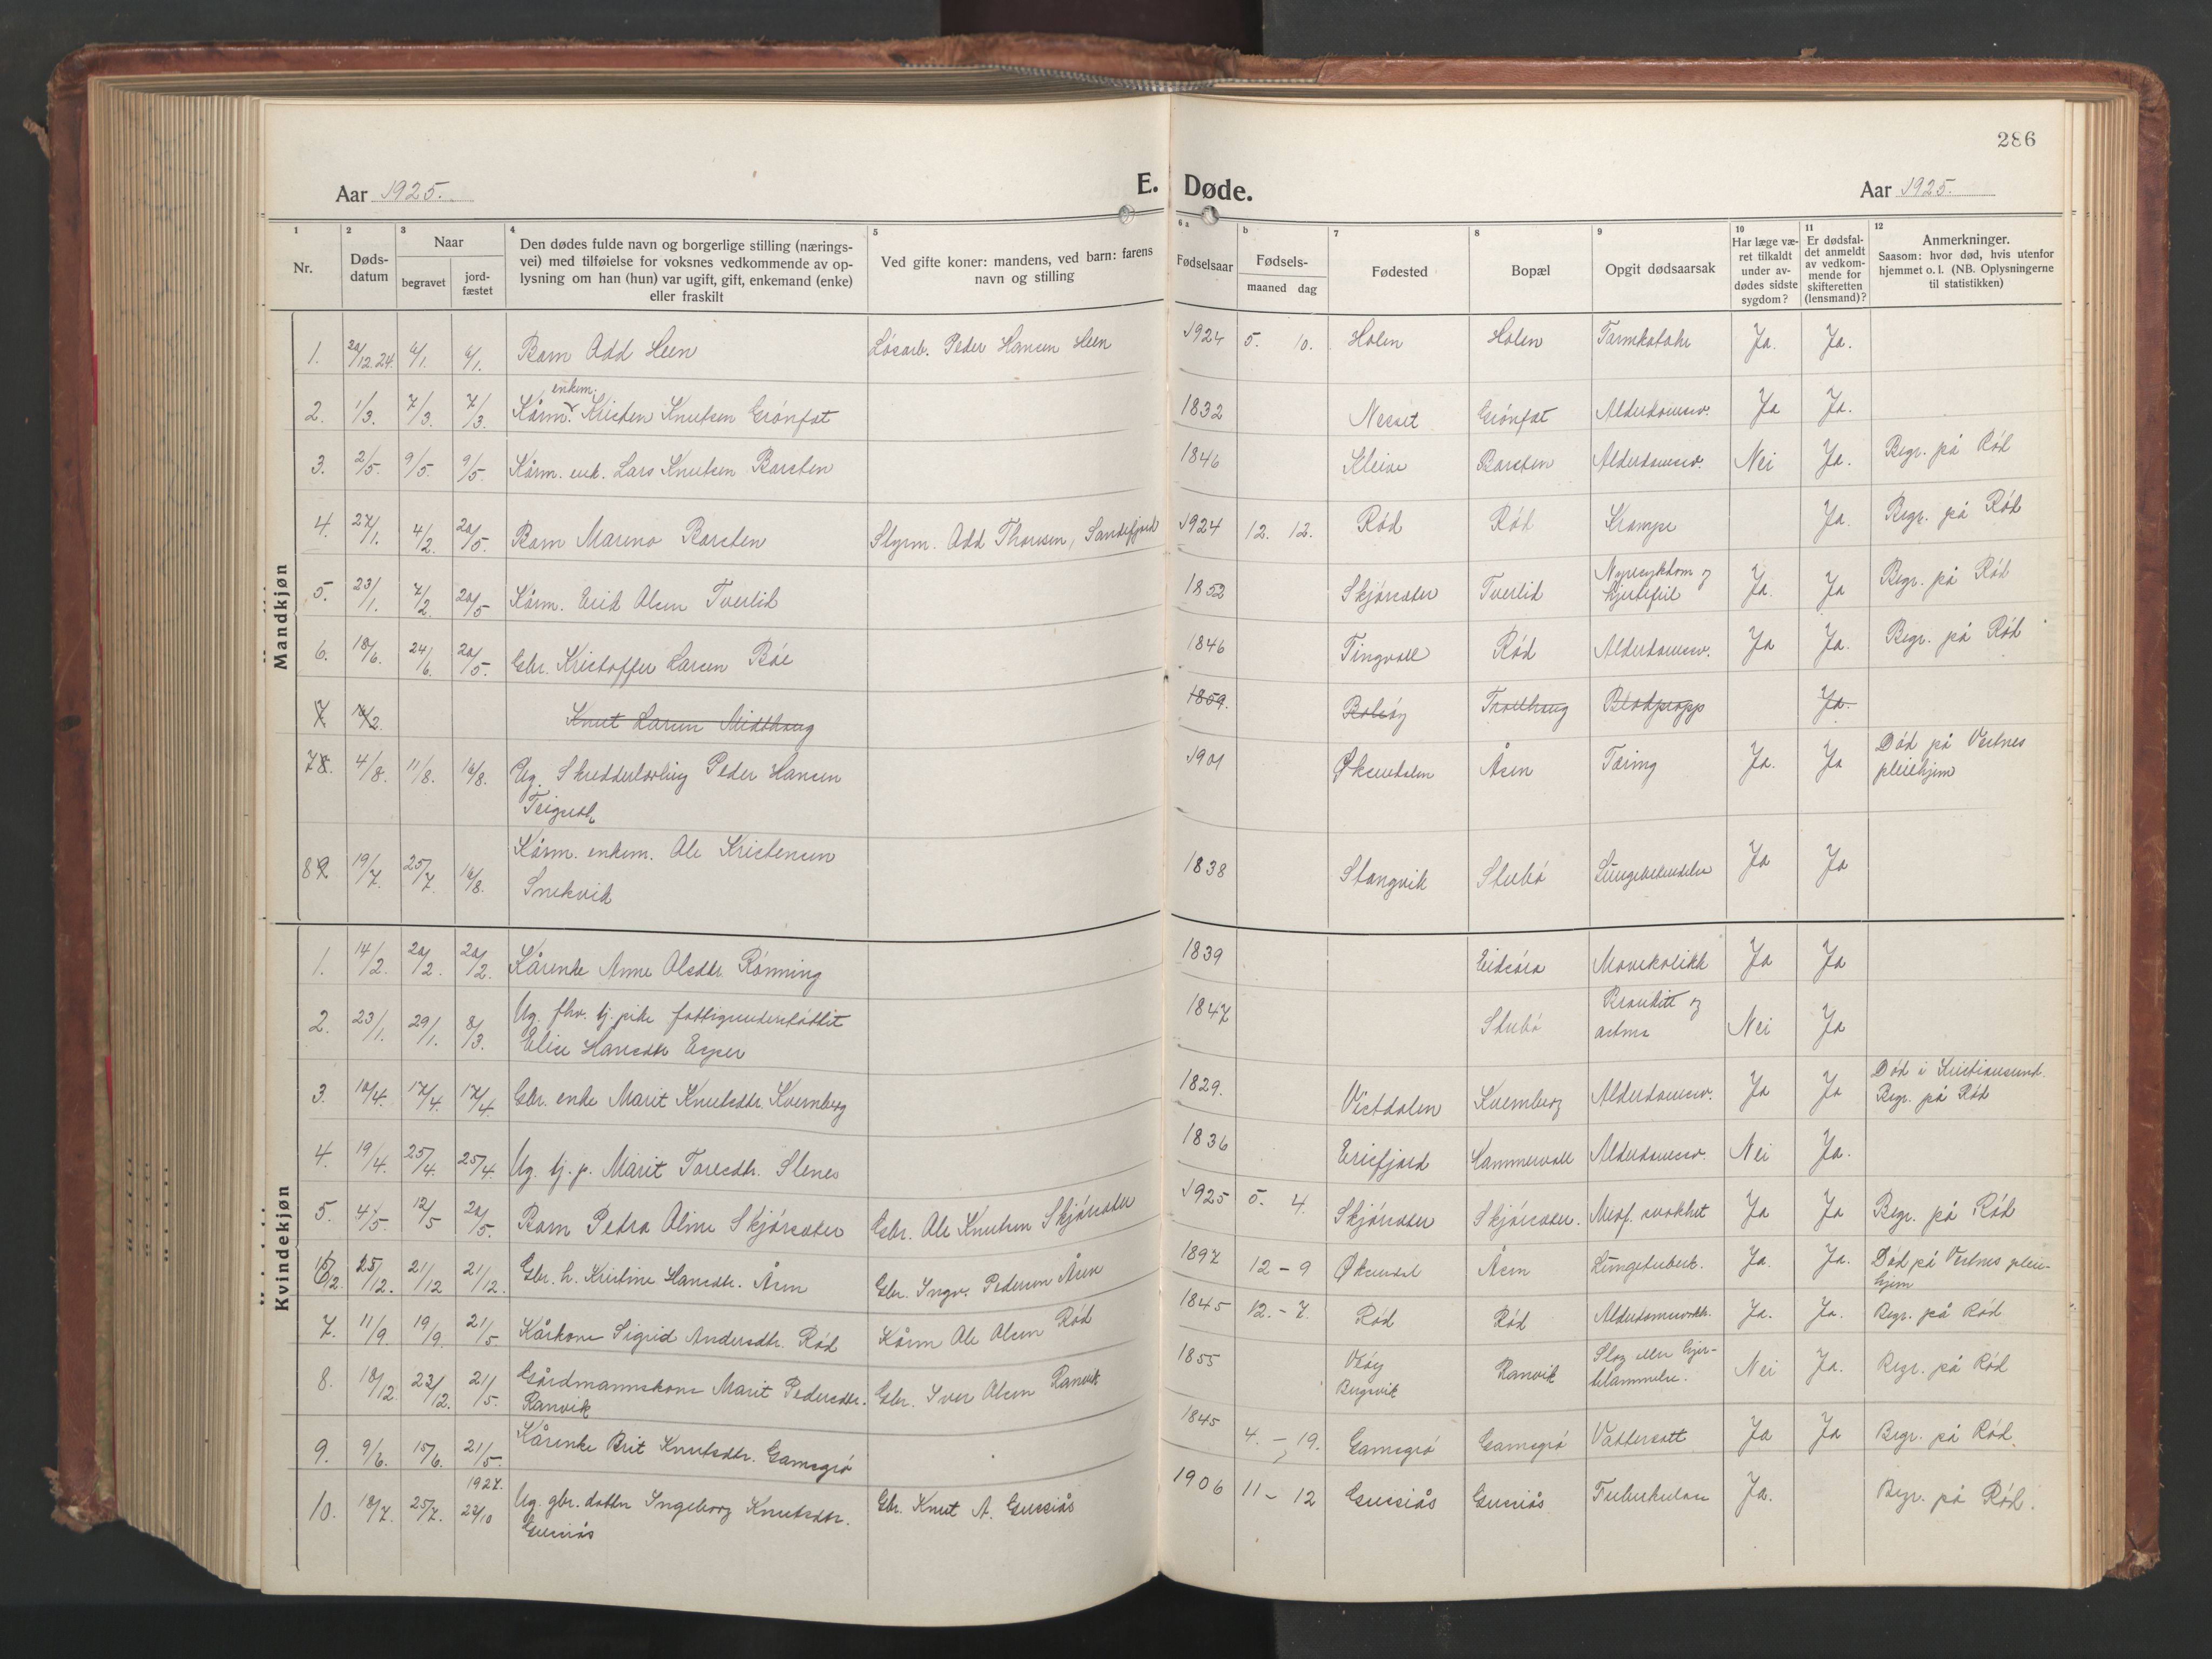 286
Aar 1925.
E. Døde.
Aar 1925.
1 2 3 4 5 6 a b 7 8 9 10 11 12
Nr.
Døds-
datum
Naar
begravet
jord-
fæstet
Den dødes fulde navn og borgerlige stilling (nærings-
vei) med tilføielse for voksnes vedkommende av op-
lysning om han (hun) var ugift, gift, enkemand (enke)
eller fraskilt
Ved gifte koner: mandens, ved barn: farens
navn og stilling
Fødselsaar
Fødsels-
maaned dag
Fødested
Bopæl
Opgit dødsaarsak
Har læge væ-
ret tilkaldt
under av-
dødes sidste
sygdom?
Er dødsfal-
det anmeldt
av vedkom-
mende for
skifteretten
(lensmand)?
Anmerkninger.
Saasom: hvor død, hvis utenfor
hjemmet o. l. (NB. Oplysningerne
til statistikken)
Mandkjøn
1. 20/12.24. 6/1. 6/1. Barn Odd Heen Løsarb. Peder Hansen Heen 1924 5. 10. Holen Holen Tarmkatahr Ja. Ja.
enkem.
2. 1/3. 7/3. 7/3. Kårm. Kristen Knutsen Grønfot 1832 Nesset Grønfot Alderdomssv. Ja Ja.
3. 2/5. 9/5. 9/5. Kårm. enk. Lars Knutsen Barsten 1846 Kleive Barsten Alderdomssv. Nei Ja. Begr. på Rød
4. 27/1. 4/2. 20/5. Barn Mareno Barsten Styrm. Odd Thoresen, Sandefjord 1924 12. 12. Rød Rød Krampe Ja. Begr. på Rød
5. 23/1. 7/2 20/5 Kårm. Erik Olsen Tverlid 1852 Skjørsæter Tverlid Nyresykdom og
hjertefeil Ja. Ja Begr. på Rød
6. 18/6. 24/6. 20/5. Gbr. Kristoffer Larsen Bøe 1846 Tingvoll Rød Alderdomssv. Ja Ja. Begr. på Rød
7 Knut Larsen Midthaug 1859. Bolsøy Trollhaug Blodpropp Ja.
78. 4/8. 11/8. 16/8. Ug. Skredderlærling Peder Hansen
1901 Øksendalen Åsen Tæring Ja. Ja Død på Vestnes
pleiehjem
89 19/7. 25/7. 16/8. Kårm. enkem. Ole Kristensen
Snekvik 1838 Stangvik Stubø Lungebetendelse Ja Ja
Kvindekjøn
1. 14/2. 20/2. 20/2. Kårenke Anne Olsdtr. Rønning 1839 Eidsøra Mavekolikk Ja Ja
2. 23/1. 29/1. 8/3. Ug. fhv. tj. pike fattigunderstøttet
Elise Hansdtr Esper 1847 Stubø Bronkitt og
astma Nei Ja
3. 10/4. 17/4. 17/4. Gbr. enke Marit Knutsdtr. Kvernberg 1829. Vistdalen Kvernberg Alderdomssv. Ja Ja Død i Kristiansund.
Begr. på Rød
4. 19/4. 25/4. 25/4. Ug. tj. p. Marit Toresdtr. Slenes 1836 Erisfjord Hammervoll Alderdomssv. Nei Ja.
5. 4/5. 12/5 20/5. Barn Petra Oline Skjørsæter Gbr. Ole Knutsen Skjørsæter 1925 5. 4. Skjørsæter Skjørsæter. Medf. svakhet Ja Ja Begr. på Rød
6 21/12 21/12. Gbr. h. Kristine Hansdtr. Åsen Gbr. Ingv. Pedersen Åsen 1897 12 – 9 Øksendal Åsen Lungetuberk. Ja. Ja. Død på Vestnes pleie-
hjem
7. 11/9 19/9. 21/5. Kårkone Sigrid Andersdtr. Rød Kårm Ole Olsen Rød 1845 12. – 7. Rød Rød Alderdomssvakh. Ja. Ja. Begr. på Rød
8. 18/12. 23/12. 21/5. Gårdmannskone Marit Pedersdtr.
Ranvik Gbr. Iver Olsen Ranvik 1855 Veøy
Ranvik Slag eller hjer-
telammelse. Nei Ja. Begr. på Rød
9. 9/6. 15/6. 21/5. Kårenke Brit Knutsdtr. Gamsgrø 1845 4. – 19. Gamsgrø Gamsgrø Vattersott Ja Ja Begr. på Rød.
1927.
10. 18/7. 25/7. 23/10 Ug. gbr. datter Ingeborg Knutsdtr.
Gussiås Gbr. Knut A. Gussiås 1906 11 – 12 Gussiås Gussiås Tuberkulose Ja. Begr. på Rød.